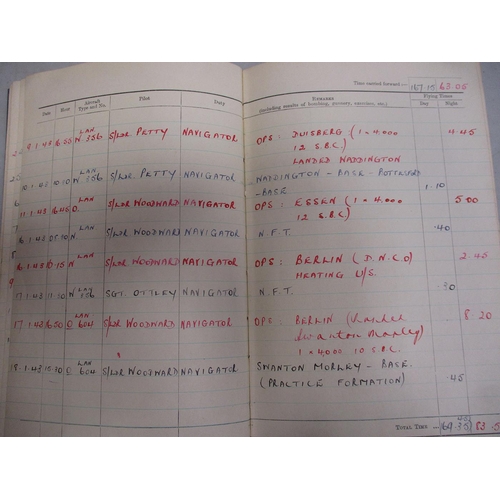 Time carried forward :— 167.15 63.05
Date Hour Aircraft Type and No. Pilot Duty REMARKS (including results of bombing, gunnery, exercises, etc.) Flying Times Day Night
9.1.43 16.55 LAN N 356 S/LDR PETTY NAVIGATOR OPS: DUISBERG (1 x 4.000 4.45
12 S.B.C.)
LANDED WADDINGTON
10.1.43 10.10 LAN N 356 S/LDR PETTY NAVIGATOR WADDINGTON - BASE -
- BASE 1.10
11.1.43 16.45 O. S/LDR WOODWARD NAVIGATOR OPS: ESSEN (1 x 4.000 5.00
12 S.B.C)
16.1.43 N S/LDR WOODWARD NAVIGATOR N.F.T. .40
16.1.43 N S/LDR WOODWARD NAVIGATOR OPS: BERLIN (D.N.C.O) 2.45
HEATING U/S.
17.1.43 11.50 LAN N 356 SGT. OTTLEY NAVIGATOR N.F.T.
17.1.43 16.50 LAN O 604 S/LDR WOODWARD NAVIGATOR OPS: BERLIN ( 8.20
Swanton Morley)
1 x 4,000 10 S.B.C.
18.1.43 LAN O 604 S/LDR WOODWARD NAVIGATOR SWANTON MORLEY - BASE.
(PRACTICE FORMATION) .45
TOTAL TIME